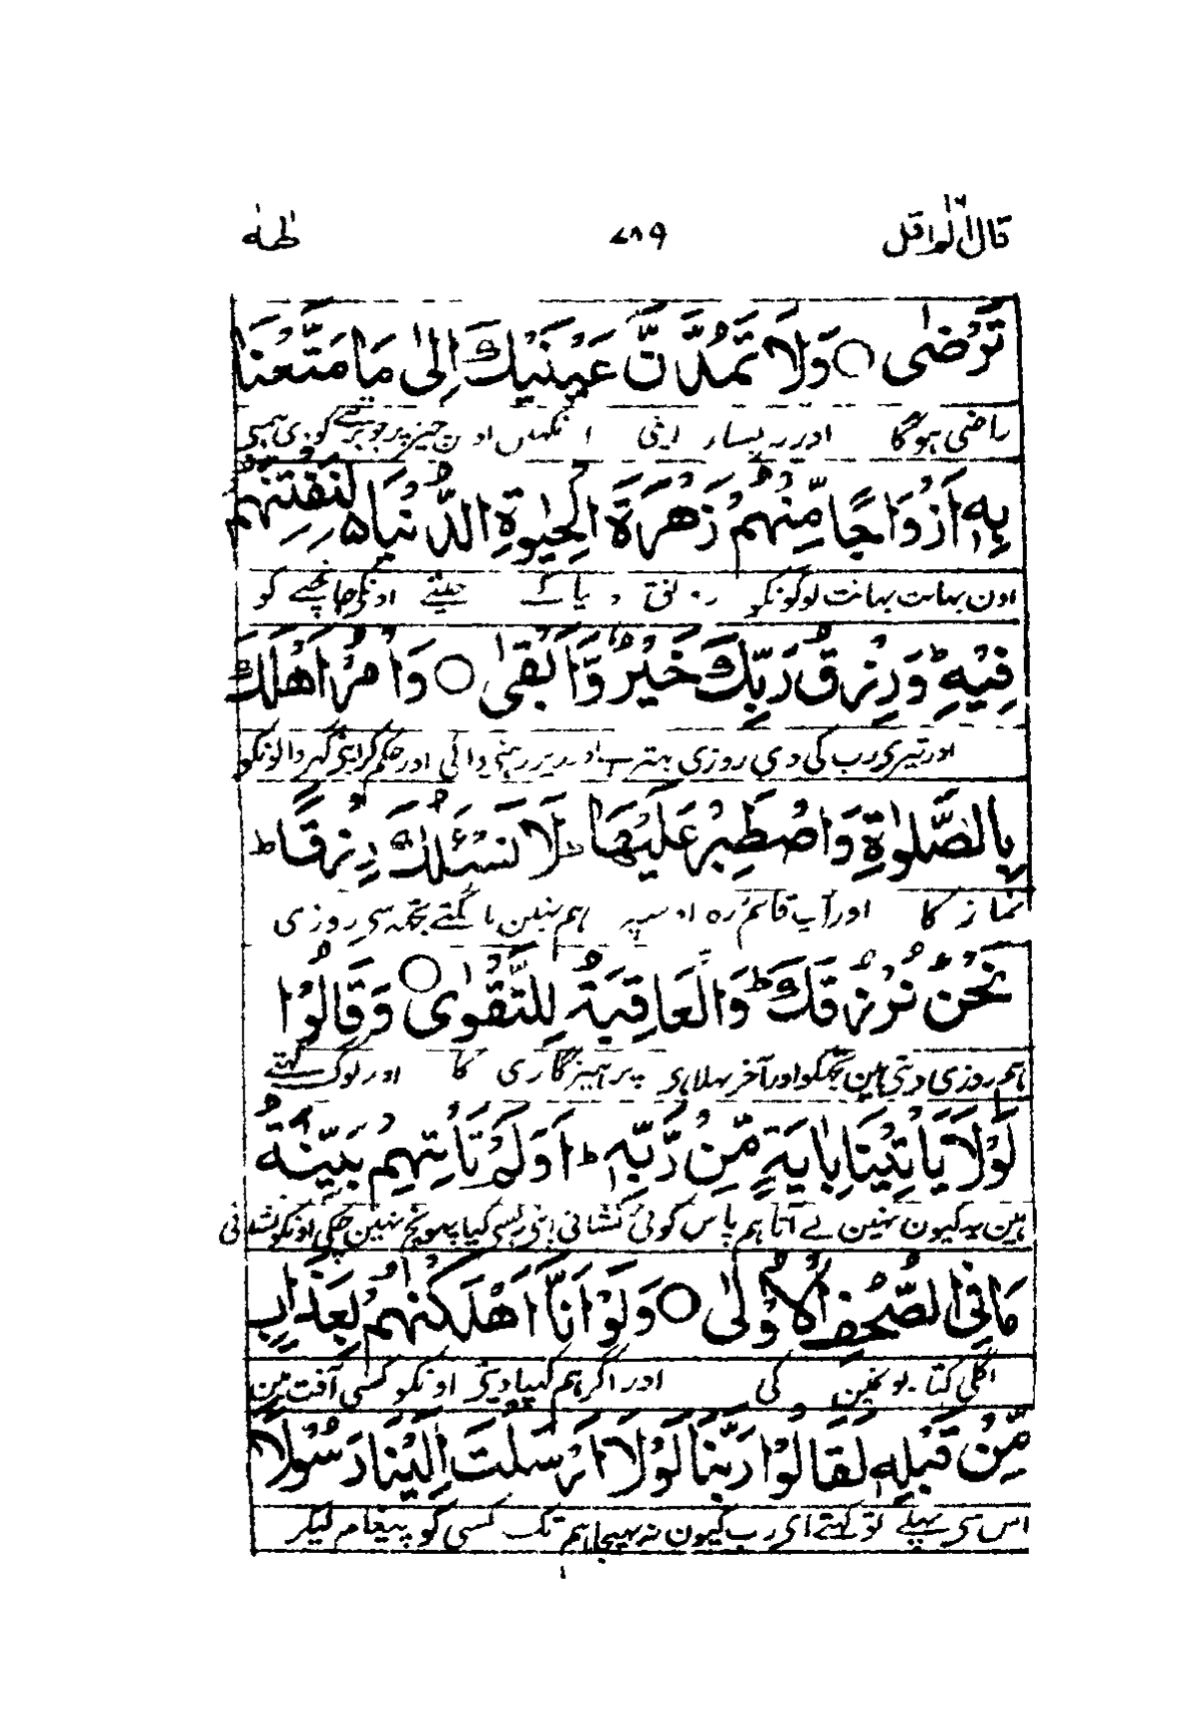 قال الم اقل ١٦
٧٨٩
طٰهٰ
تَرْضٰى ○ وَلَا تَمُدَّنَّ عَيْنَيْكَ اِلٰى مَا مَتَّعْنَا
راضی ہوگا اور نہ پسار اپنی آنکھیں اون چیز پر جو برتنے کو دی ہمنے
بِهٖٓ اَزْوَاجًا مِّنْهُمْ زَهْرَةَ الْحَيٰوةِ الدُّنْيَا ۵ لِنَفْتِنَهُمْ
اون بہانت بہانت لوگونکو رونق دنیا کے جیتے اونکے جانچنے کو
فِيْهِ ؕ وَرِزْقُ رَبِّكَ خَيْرٌ وَّاَبْقٰى ○ وَاْمُرْ اَهْلَكَ
اور تیری رب کی دی روزی بہتر ہے اور دیر رہنی والی اور حکم کر اپنی گہر والونکو
بِالصَّلٰوةِ وَاصْطَبِرْ عَلَيْهَا ؕ لَا نَسْـَٔلُكَ رِزْقًا ؕ
نماز کا اور آپ قائم رہ اوسپہ ہم نہین مانگتے تجھہ سی روزی
نَحْنُ نَرْزُقُكَ ؕ وَالْعَاقِبَةُ لِلتَّقْوٰى ○ وَقَالُوْا
ہم روزی دیتی ہین تجکو اور آخر بہلا ہی پرہیزگاری کا اور لوگ کہتے
لَوْلَا يَاْتِيْنَا بِاٰيَةٍ مِّنْ رَّبِّهٖ ؕ اَوَلَمْ تَاْتِهِمْ بَيِّنَةُ
ہین یہ کیون نہین لے آتا ہم پاس کوئی نشانی اپنی رب سی کیا پہونچ نہین چکی اونکو نشانی
مَا فِى الصُّحُفِ الْاُوْلٰى ○ وَلَوْ اَنَّآ اَهْلَكْنٰهُمْ بِعَذَابٍ
اگلی کتابونمین کی اور اگر ہم کہپا دیتی اونکو کسی آفت مین
مِّنْ قَبْلِهٖ لَقَالُوْا رَبَّنَا لَوْلَآ اَرْسَلْتَ اِلَيْنَا رَسُوْلًا
اس سی پہلے تو کہتے ای رب کیون نہ بہیجا ہم تک کسی کو پیغام لیکر